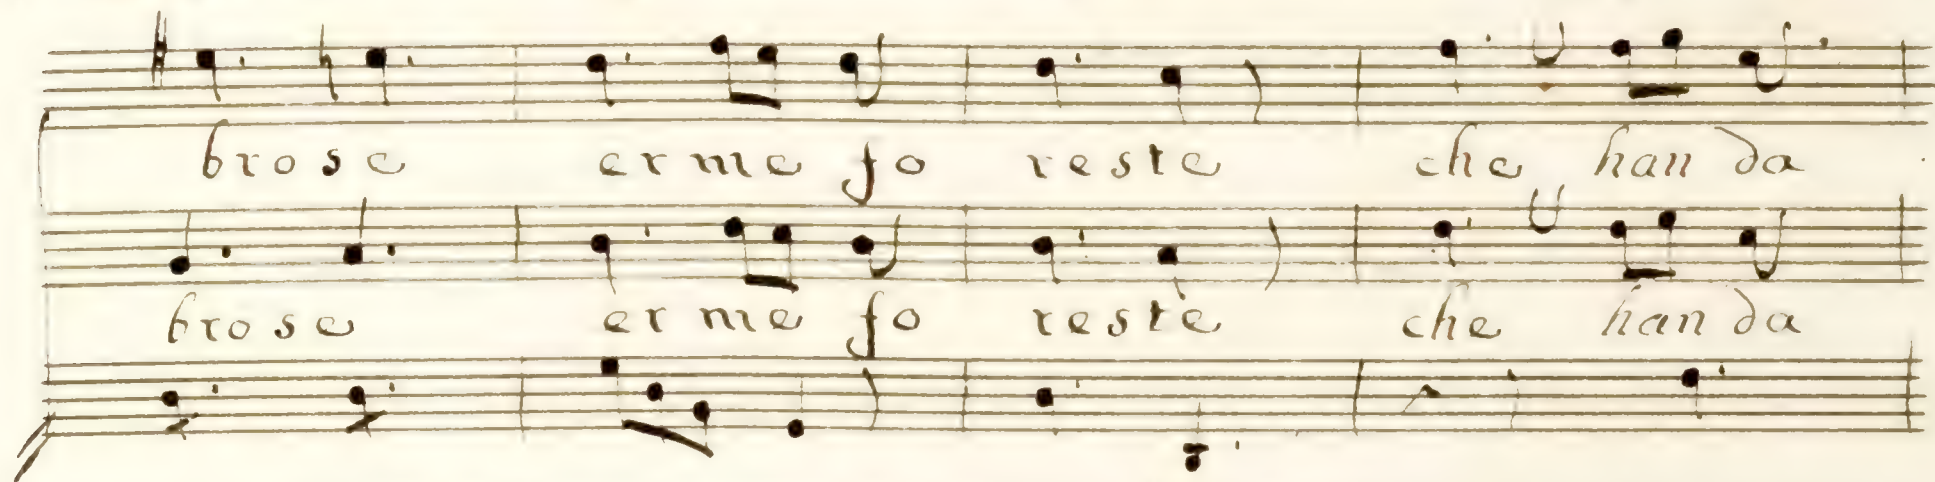 brose erme fo reste che han da
brose erme fo reste che han da